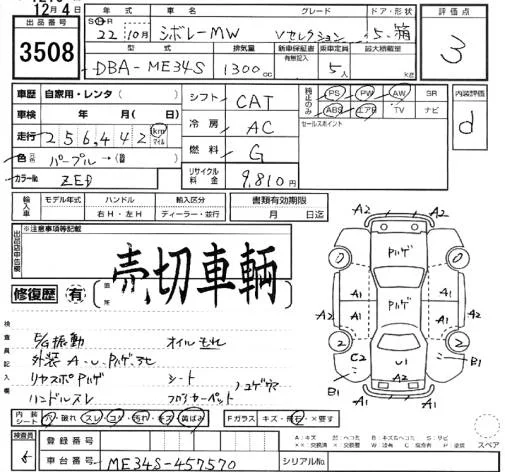 12月4日
出品番号
3508
年 式 車 名 グレード ドア・形状
S H R
22年10月 シボレーMW Vセレクション 5.箱
型 式 排気量 新車保証書 乗車定員 最大積載量
有無記入
DBA-ME34S 1300cc 5人 Kg
評価点
3
車歴 自家用・レンタ( )
車検 年 月( 日)
走行 256,442 km マイル
色 元色 パープル→(替 )
カラーNo ZED
シフト CAT
冷房 AC
燃料 G
リサイクル料金 9,810円
純正のみ PS PW AW SR
ABS エアB TV ナビ
セールスポイント
内装評価
d
輸入車 モデル年式 ハンドル 輸入区分
右H・左H ディーラー・並行
書類有効期限
月 日迄
出品店申告欄
※注意事項等記載
売切車輌
修復歴 有
箇所
検査員記入欄
E/G振動 オイルもれ
外装A・U・Pハゲ・
リヤスポPハゲ シート
ハンドルスレ フロアカーペット
内装シート 穴・破れ・スレ・コゲ・汚れ・キズ・黄ばみ Fガラス キズ・飛石・×要す
検査員
登録番号
車台番号 ME34S-457570 シリアルNo.
A2 A2
Pハゲ
A1 A1
Pハゲ
A1 A1
C2 U1
B1 B1
A2
A2 A2
スペア
A:キズ U:ヘコミ B:キズ&ヘコミ S:サビ